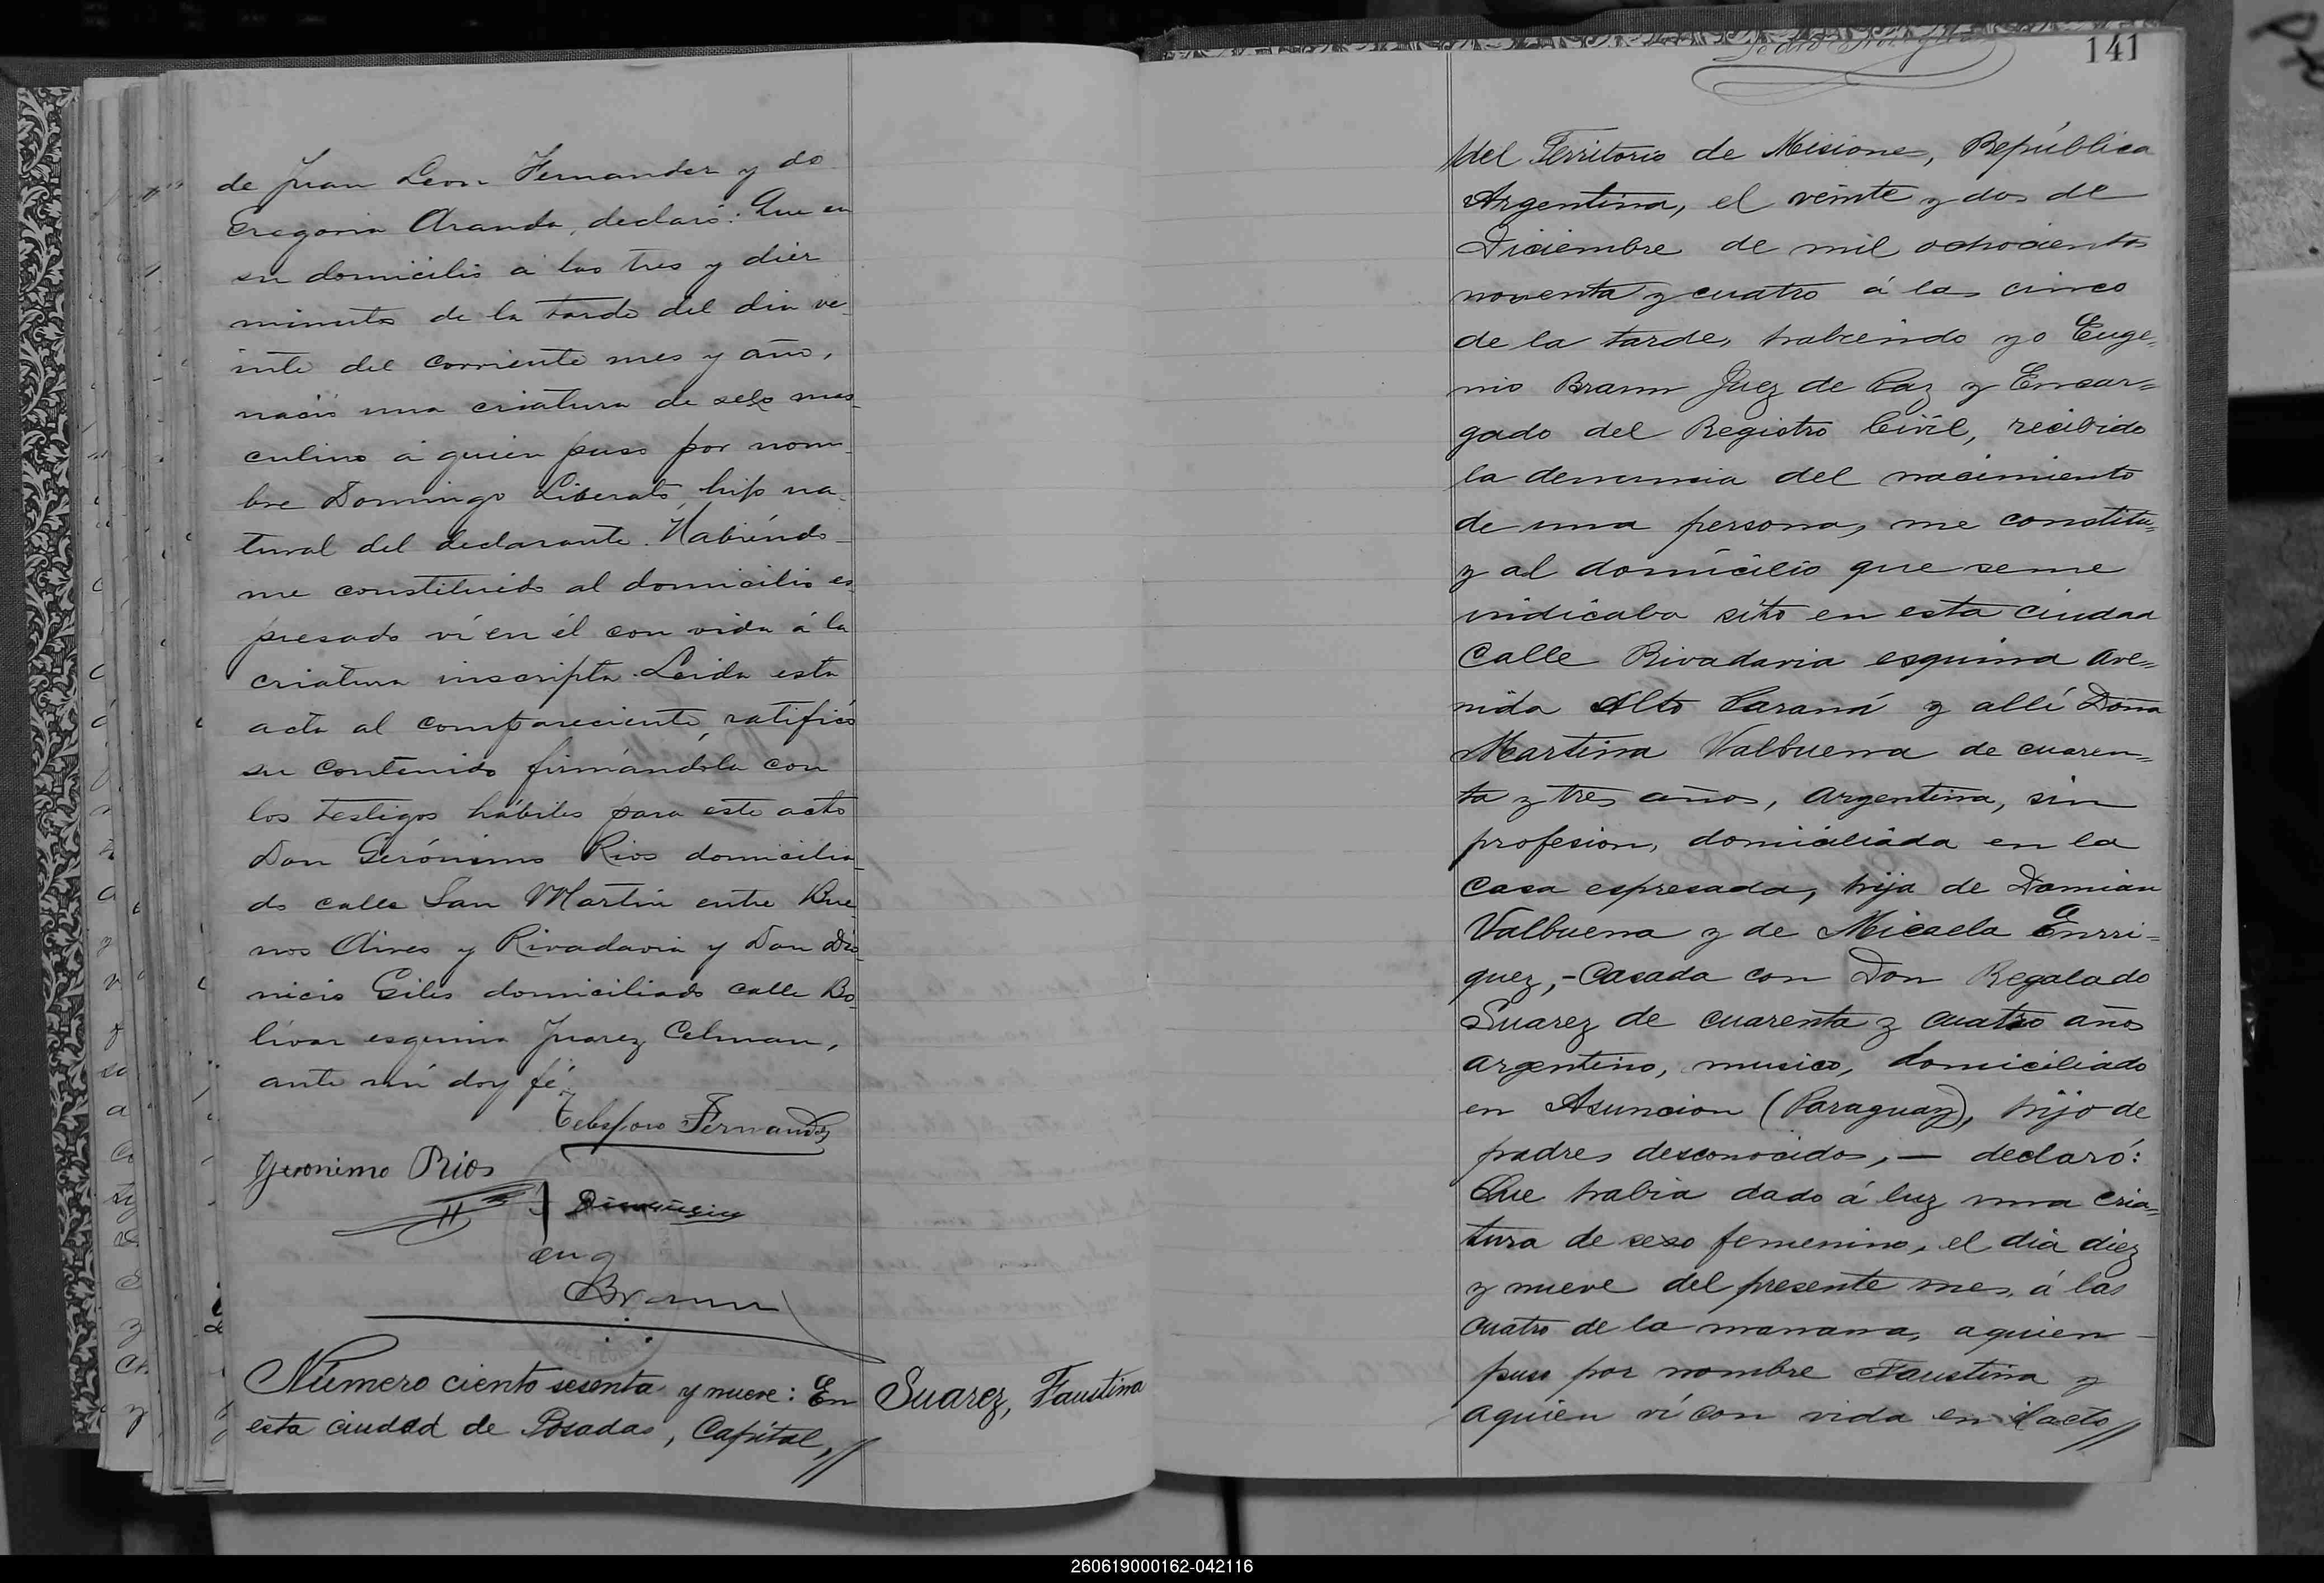 de Juan Leon Fernandez y de
Gregoria Aranda, declaró: Que en
su domicilio á las tres y diez
minutos de la tarde del dia ve-
inte del corriente mes y año,
nació una criatura de sexo mas-
culino á quien puso por nom-
bre Domingo Liberato, hijo na-
tural del declarante. Habiéndo-
me constituido al domicilio es-
presado ví en él con vida á la
criatura inscripta. Leida esta
acta al compareciente, ratificó
su contenido firmándola con
los testigos hábiles para este acto
Don Gerónimo Rios domicilia-
do calle San Martin entre Bue-
nos Aires y Rivadavia y Don Dio-
nicio Giles domiciliado calle Bo-
livar esquina Juarez Celman,
ante mí doy fé.
Telesforo Fernandez
Geronimo Rios
Eug
Braun
Número ciento sesenta y nueve: En
esta ciudad de Posadas, Capital,//
Suarez, Faustina
141
//del Territorio de Misiones, República
Argentina, el veinte y dos de
Diciembre de mil ochocientos
noventa y cuatro á las cinco
de la tarde, habiendo yo Euge=
nio Braun Juez de Paz y Encar=
gado del Registro Civil, recibido
la denuncia del nacimiento
de una persona, me constitu=
y al domicilio que se me
indicaba sito en esta ciudad
Calle Rivadavia esquina Ave=
nida Alto Paraná y allí Doña
Martina Valbuena de cuaren=
ta y tres años, Argentina, sin
profesion, domiciliada en la
Casa espresada, hija de Damian
Valbuena y de Micaela Enrri=
quez,- Casada con Don Regalado
Suarez de cuarenta y cuatro años
argentino, musico, domiciliado
en Asuncion (Paraguay), hijo de
padres desconocidos,— declaró:
Que habia dado á luz una cria=
tura de sexo femenino, el dia diez
y nueve del presente mes, á las
cuatro de la manana, aquien
puso por nombre Faustina y
aquien ví con vida en el acto//
260619000162-042116